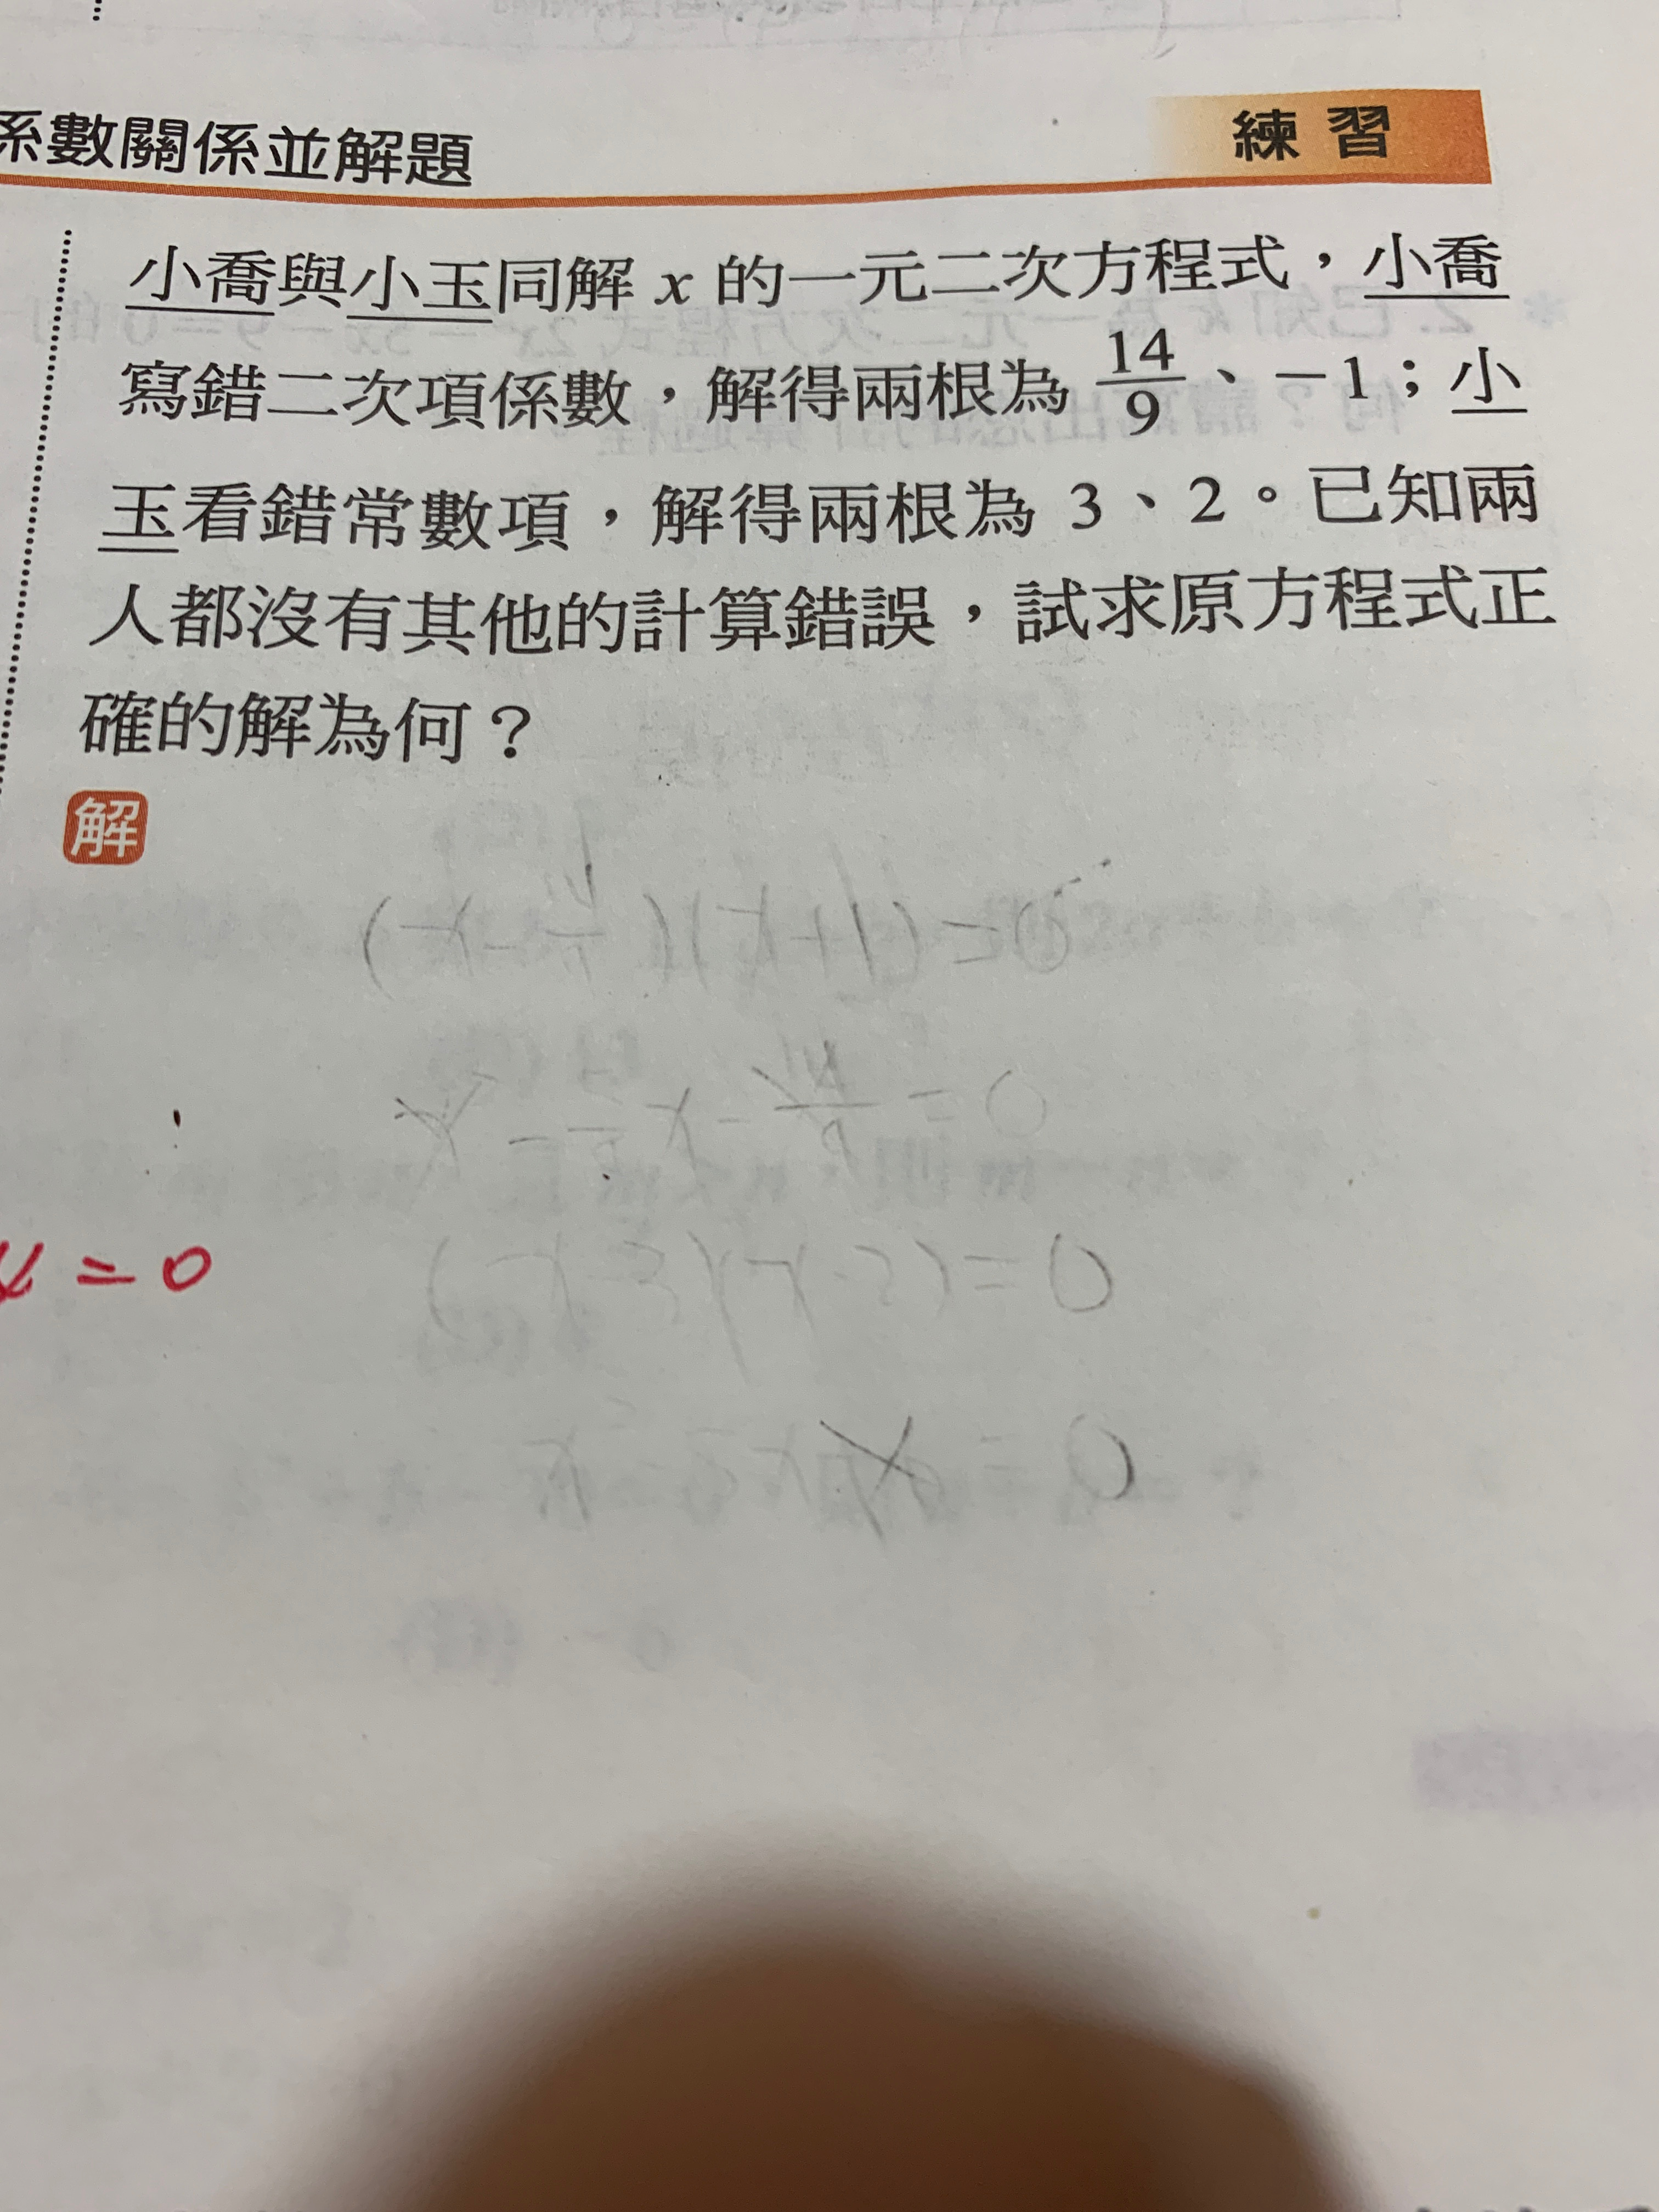 係數關係並解題
練習
小喬與小玉同解 x 的一元二次方程式,小喬
寫錯二次項係數,解得兩根為 14/9、-1;小
玉看錯常數項,解得兩根為 3、2。已知兩
人都沒有其他的計算錯誤,試求原方程式正
確的解為何?
解
= 0